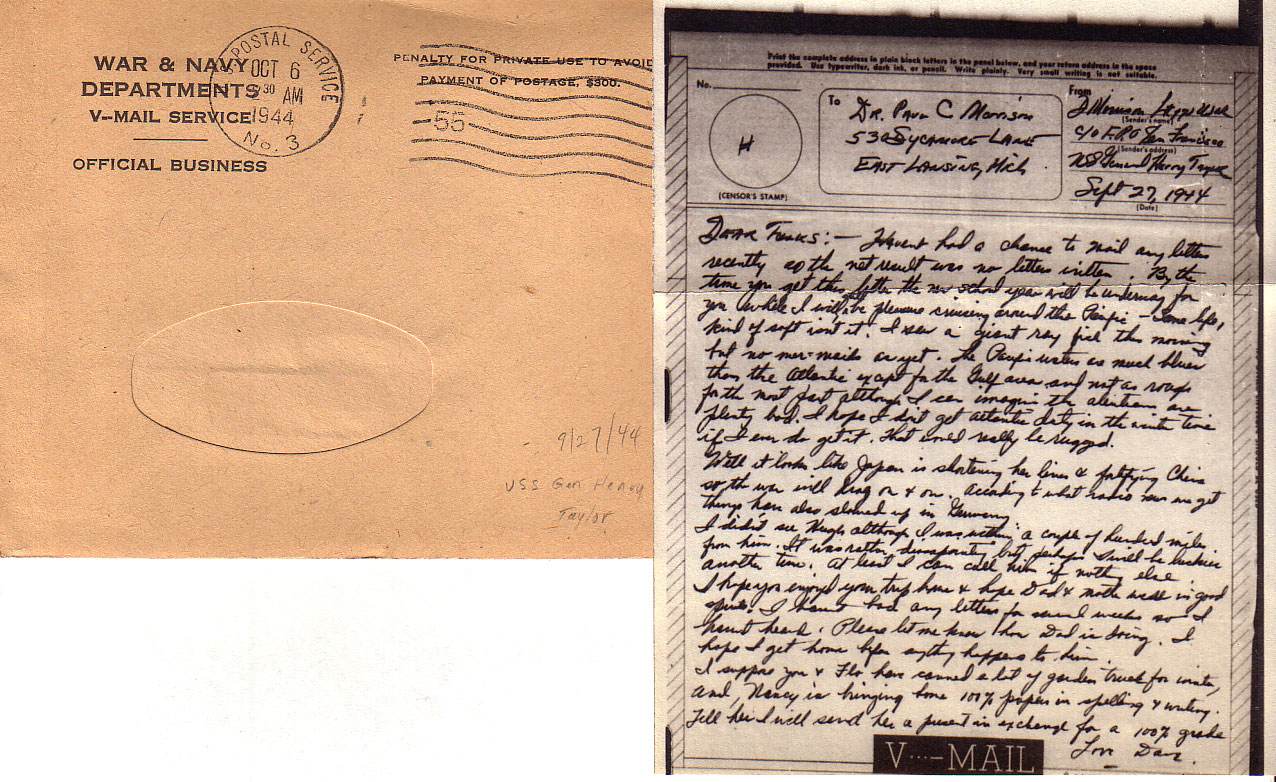 WAR & NAVY
DEPARTMENTS
V--MAIL SERVICE
OFFICIAL BUSINESS
POSTAL SERVICE
OCT 6
30 AM
1944
No. 3
PENALTY FOR PRIVATE USE TO AVOID
PAYMENT OF POSTAGE, $300.
55
9/27/44
USS Gen Henry
Taylor
Print the complete address in plain block letters in the panel below, and your return address in the space
provided. Use typewriter, dark ink, or pencil. Write plainly. Very small writing is not suitable.
No.
H
(CENSOR'S STAMP)
To
DR. PAUL C MORRISON
SYCAMORE LANE
EAST LANSING, MICH
From
D Morrison
(Sender's name)
C/O F.P.O San Francisco
(Sender's address)
USS General Harry Taylor
Sept 27, 1944
(Date)
DEAR FOLKS:- Havent had a chance to mail any letters
recently so the net result was no letters written. By the
time you get this letter the new school year will be underway for
you while I will be pleasure cruising around the Pacific - Some life,
kind of soft isnt it. I saw a giant ray fish this morning
but no mer-maids as yet. The Pacific waters are much bluer
than the Atlantic except for the Gulf area and not as rough
for the most part although I can imagine the aleutians are
plenty bad. I hope I dont get atlantic duty in the winter time
if I ever do get it. That would really be rugged.
Well it looks like Japan is shortening her lines & fortifying China
so the war will drag on & on. According to what radio news we get
things have also slowed up in Germany.
I didnt see Hugh although I was within a couple of hundred miles
from him. It was rather but perhaps I will be luckier
another time. At least I can call him if nothing else
I hope you enjoyed your trip home & hope Dad & mother were in good
spirits. I havent had any letters for several weeks so I
havent heard. Please let me know how Dad is doing. I
hope I get home before anything happens to him.
I suppose you & Flo have canned a lot of garden truck for winter,
and, Nancy is bringing home 100% papers in spelling & writing.
Tell her I will send her a present in exchange for a 100% grade
Love Dave.
V···—MAIL